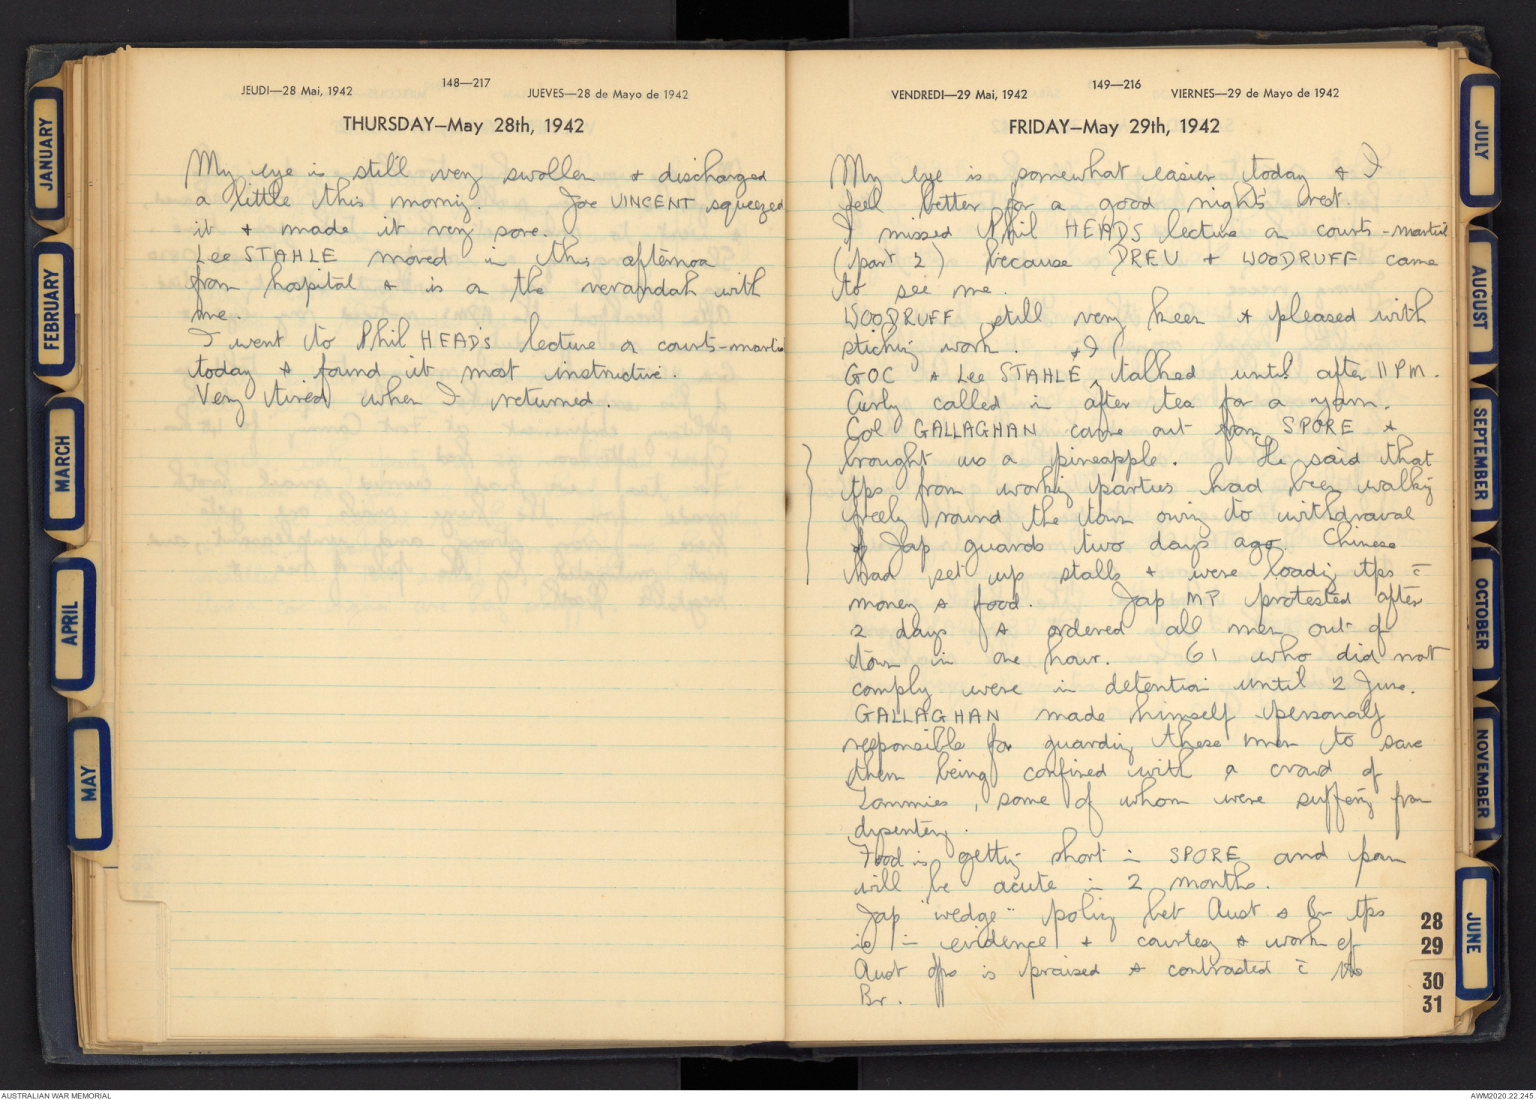 JANUARY
FEBRUARY
MARCH
APRIL
MAY
JEUDI—28 Mai, 1942
148—217
JUEVES—28 de Mayo de 1942
THURSDAY—May 28th, 1942
My eye is still very swollen & discharged
a little this morning. Joe VINCENT squeezed
it & made it very sore.
Lee STAHLE moved in this afternoon
from hospital & is on the verandah with
me.
I went to Phil HEAD's lecture on courts-martial
today & found it most instructive.
Very tired when I returned.
VENDREDI—29 Mai, 1942
149—216
VIERNES—29 de Mayo de 1942
FRIDAY—May 29th, 1942
My eye is somewhat easier today & I
feel better for a good night's rest.
I missed Phil HEADS lecture on courts-martial
(part 2) because DREW & WOODRUFF came
to see me.
WOODRUFF still very keen & pleased with
work.
GOC & Lee STAHLE & I talked until after 11 PM.
Curly called in after tea for a yarn.
Col GALLAGHAN came out from SPORE &
brought us a pineapple. He said that
tps from working parties had been walking
freely round the town owing to withdrawal
of Jap guards two days ago. Chinese
had set up stalls & were loading tps c̄
money & food. Jap MP protested after
2 days & ordered all men out of
town in one hour. 61 who did not
comply were in detention until 2 June.
GALLAGHAN made himself personally
responsible for guarding these men to save
them being confined with a crowd of
Tommies, some of whom were suffering from
dysentery.
Food is getting short in SPORE and
will be acute in 2 months.
Jap "wedge" policy bet Aust & Br tps
is in evidence & courtesy & work of
Aust tps is praised & contrasted c̄ the
Br.
JULY
AUGUST
SEPTEMBER
OCTOBER
NOVEMBER
JUNE
28
29
30
31
AUSTRALIAN WAR MEMORIAL
AWM2020.22.245